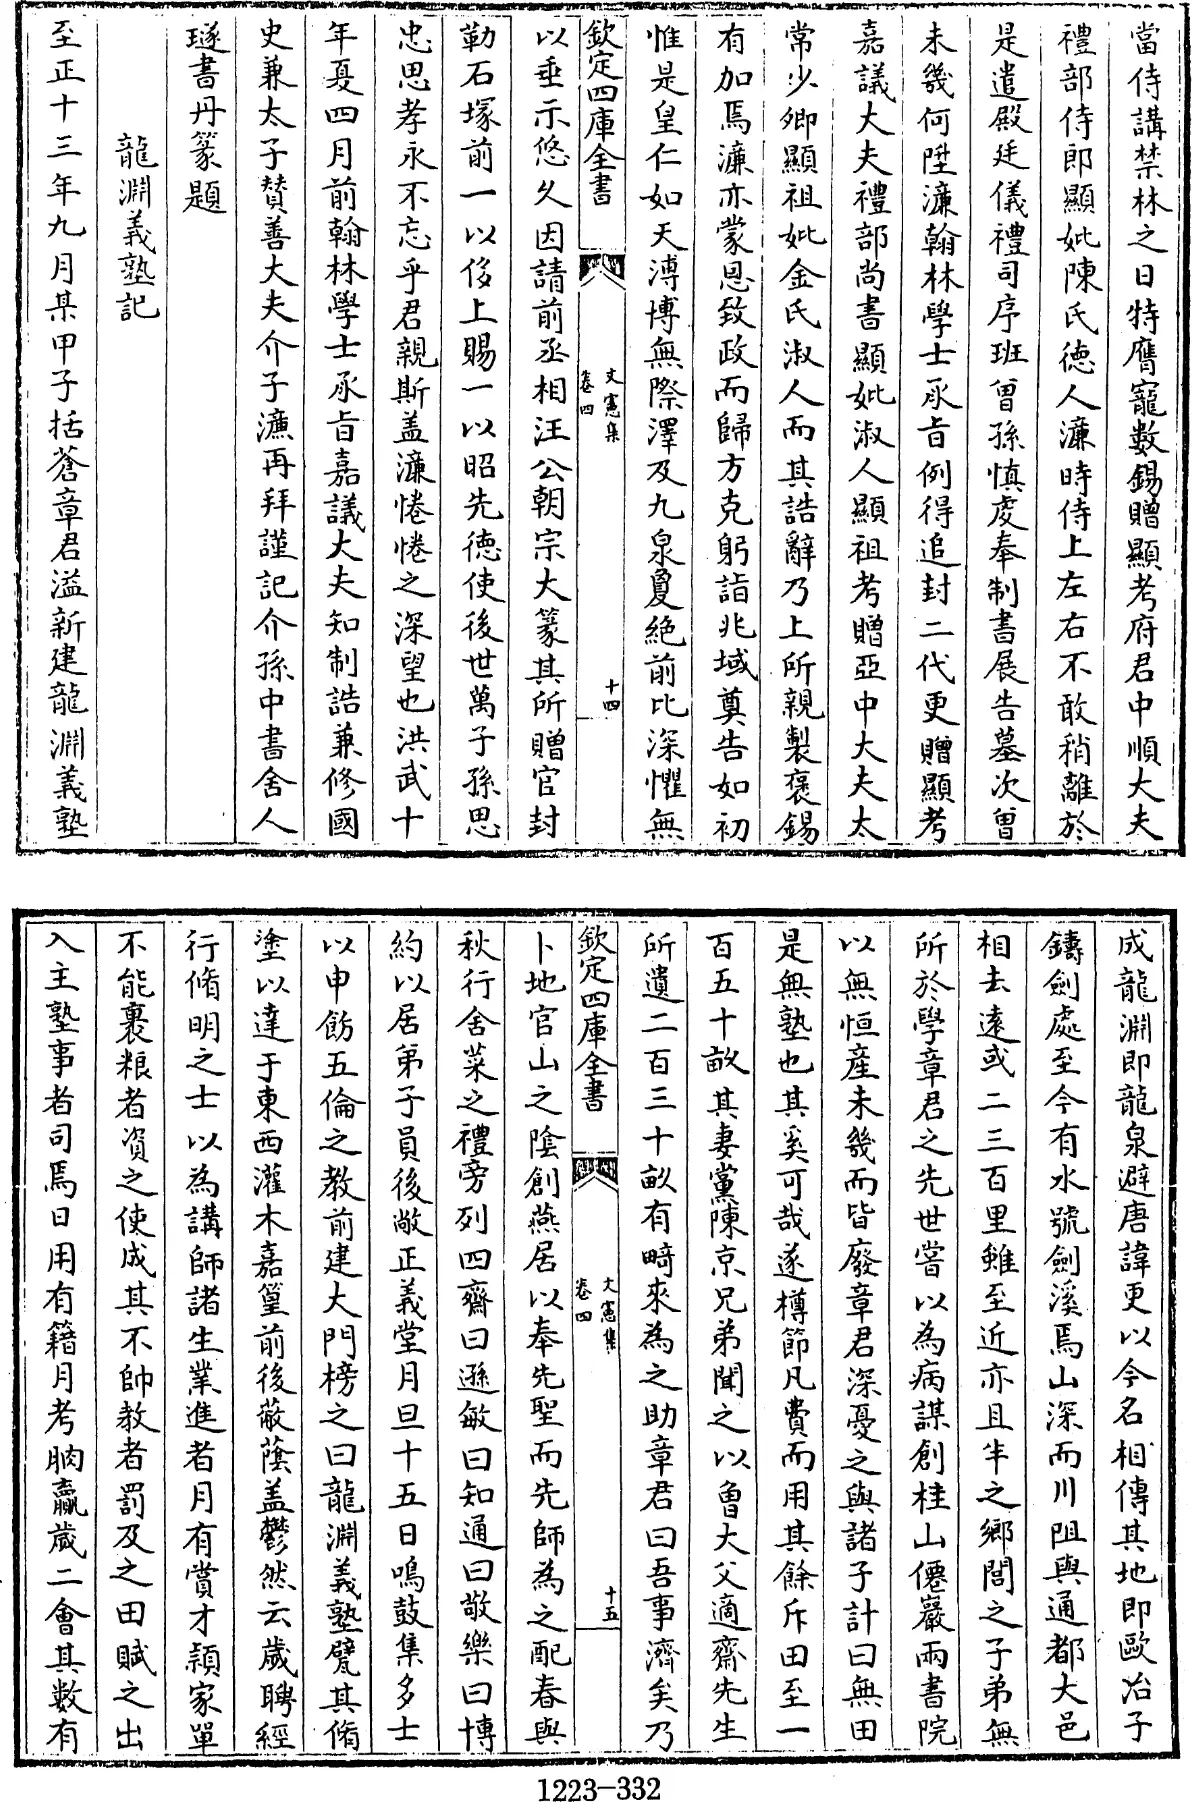 當侍講禁林之日特膺寵數錫贈顯考府君中順大夫
禮部侍郎顯妣陳氏徳人濂時侍上左右不敢稍離於
是遣殿廷儀禮司序班曾孫慎䖍奉制書展告墓次曾
未幾何陞濂翰林學士承旨例得追封二代更贈顯考
嘉議大夫禮部尚書顯妣淑人顯祖考贈亞中大夫太
常少卿顯祖妣金氏淑人而其誥辭乃上所親製褒錫
有加焉濂亦蒙恩致政而歸方克躬詣兆域奠告如初
惟是皇仁如天溥博無際澤及九泉夐絶前比深懼無
欽定四庫全書
文憲集
卷四
十四
以垂示悠久因請前丞相汪公朝宗大篆其所贈官封
勒石塚前一以侈上賜一以昭先徳使後世萬子孫思
忠思孝永不忘乎君親斯盖濂惓惓之深望也洪武十
年夏四月前翰林學士承旨嘉議大夫知制誥兼修國
史兼太子賛善大夫介子濂再拜謹記介孫中書舍人
璲書丹篆題
龍淵義塾記
至正十三年九月某甲子括蒼章君溢新建龍淵義塾
成龍淵即龍泉避唐諱更以今名相傳其地即歐冶子
鑄劍處至今有水號劍溪焉山深而川阻與通都大邑
相去逺或二三百里雖至近亦且半之鄉閭之子弟無
所於學章君之先世嘗以為病謀創桂山僊巖兩書院
以無恒産未幾而皆廢章君深憂之與諸子計曰無田
是無塾也其奚可哉遂樽節凡費而用其餘斥田至一
百五十畝其妻黨陳京兄弟聞之以曾大父適齋先生
所遺二百三十畝有畸來為之助章君曰吾事濟矣乃
欽定四庫全書
文憲集
卷四
十五
卜地官山之隂創燕居以奉先聖而先師為之配春與
秋行舍菜之禮旁列四齋曰遜敏曰知通曰敬樂曰博
約以居弟子員後敞正義堂月旦十五日鳴鼓集多士
以申飭五倫之教前建大門榜之曰龍淵義塾甓其脩
塗以達于東西灌木嘉篁前後蔽蔭盖鬱然云歳聘經
行脩明之士以為講師諸生業進者月有賞才頴家單
不能裹粮者資之使成其不帥教者罰及之田賦之出
入主塾事者司焉日用有籍月考朒贏歳二會其數有
1223-332